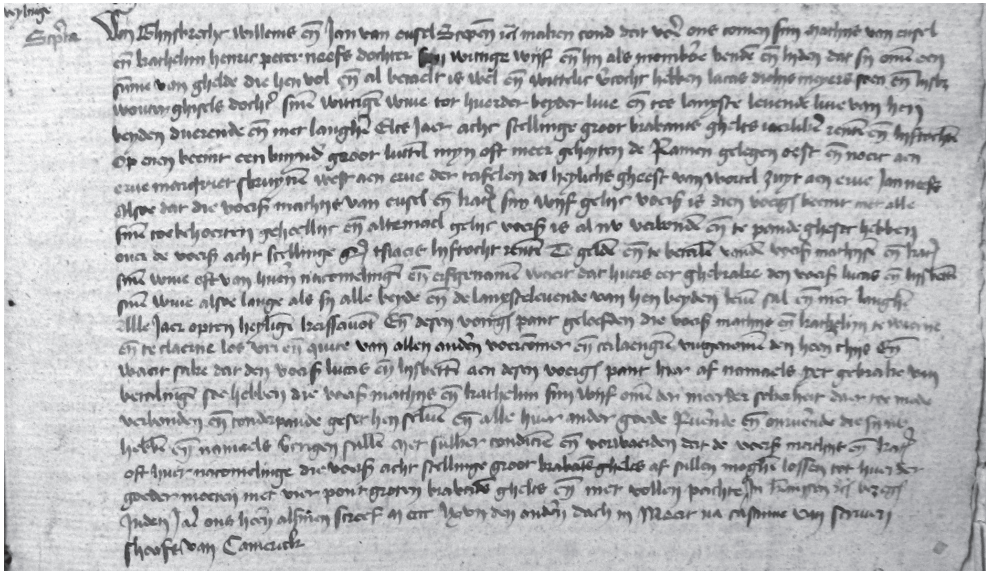 Scep̄ta
Wij Ghijsbrecht Willems eñ Jan van eusel Scepen̄ maken cond dat voer ons comen sijn mathijs van eusel
eñ kathelijn henric peter neefs dochter sijn wittige wijf eñ hij als momboer bende eñ liden dat sij omme een
somme van ghelde die hen vol eñ al betaelt is wel eñ wittelic vercocht hebben lucas dielijs meyers soen eñ lijsb
wouter ghijsels docht̄ sijnre wittiḡ wive tot huerder beyder live eñ ten langste levende live van hen
beyden duerende eñ niet langh̄ Elcs Jaer acht scellinge groot brabants ghelts rent̄ eñ lijftocht̄
Op enen beemt een buynd̄ groot luttel myn oft meer geheyten de Ramen gelegen oest eñ noert aen
erve margriet sbruynen west aen erve der tafelen des heylichs gheest van wortel zuyt aen erve Jan neefs
Alsoe dat die voers̄ mathijs van eusel eñ kath̄ sijn wijf gelijc voers̄ is dien voers̄ beemt met alle
sinen toebehoerten geheellic eñ altemael gelijc voers̄ is al nu verbonden eñ te pande gheset hebben
over de voers̄ acht scellinge gr̄ tsiaers lijftocht renten Te gelden eñ te betalen vanden voers̄ mathijse eñ kath̄
sijnen wive oft van huer̄ nacomelingen eñ erfgenamen waert dat huers eer ghebrake den voers̄ lucas eñ lijsbetten
sijnen wive alsoe lange als sij alle beyde eñ de langste levende van hen beyden leven sal eñ niet langh̄
Alle Jaer opten heyliḡ kerssavont Eñ desen voers̄ pant geloefden die voers̄ mathijs eñ kathelijn te waerne
eñ te claerne los vri eñ quite van allen ander̄ voercomer eñ calaengien uutgenomen den heen chijs Eñ
waert sake dat den voers̄ lucas eñ lijsbetten aen desen voers̄ pant hier af namaels yet gebrake van
betalingen soe hebben die voers̄ mathijs eñ kathelijn sijn wijf omme dan meerder sekerheit daer toe mede
verbonden eñ tonderpande geset hen selven eñ alle huer ander goede Ruerende eñ onruerende die sij nu
hebben eñ namaels vercrigen sullen Met sulker condicien eñ vorwaerden dat de voers̄ mathijs eñ kath̄
oft huer nacomelinge die voers̄ acht scellinge groot brabants ghelts af sullen moghen lossen tot huerder
goeder moeten met vier pont groten brabants ghelts eñ met vollen pachte In kennissen
Inden Jaer ons heen alsmen screef M cccc den anderen dach in Meert na custume van scriven
shoofs van Camerick